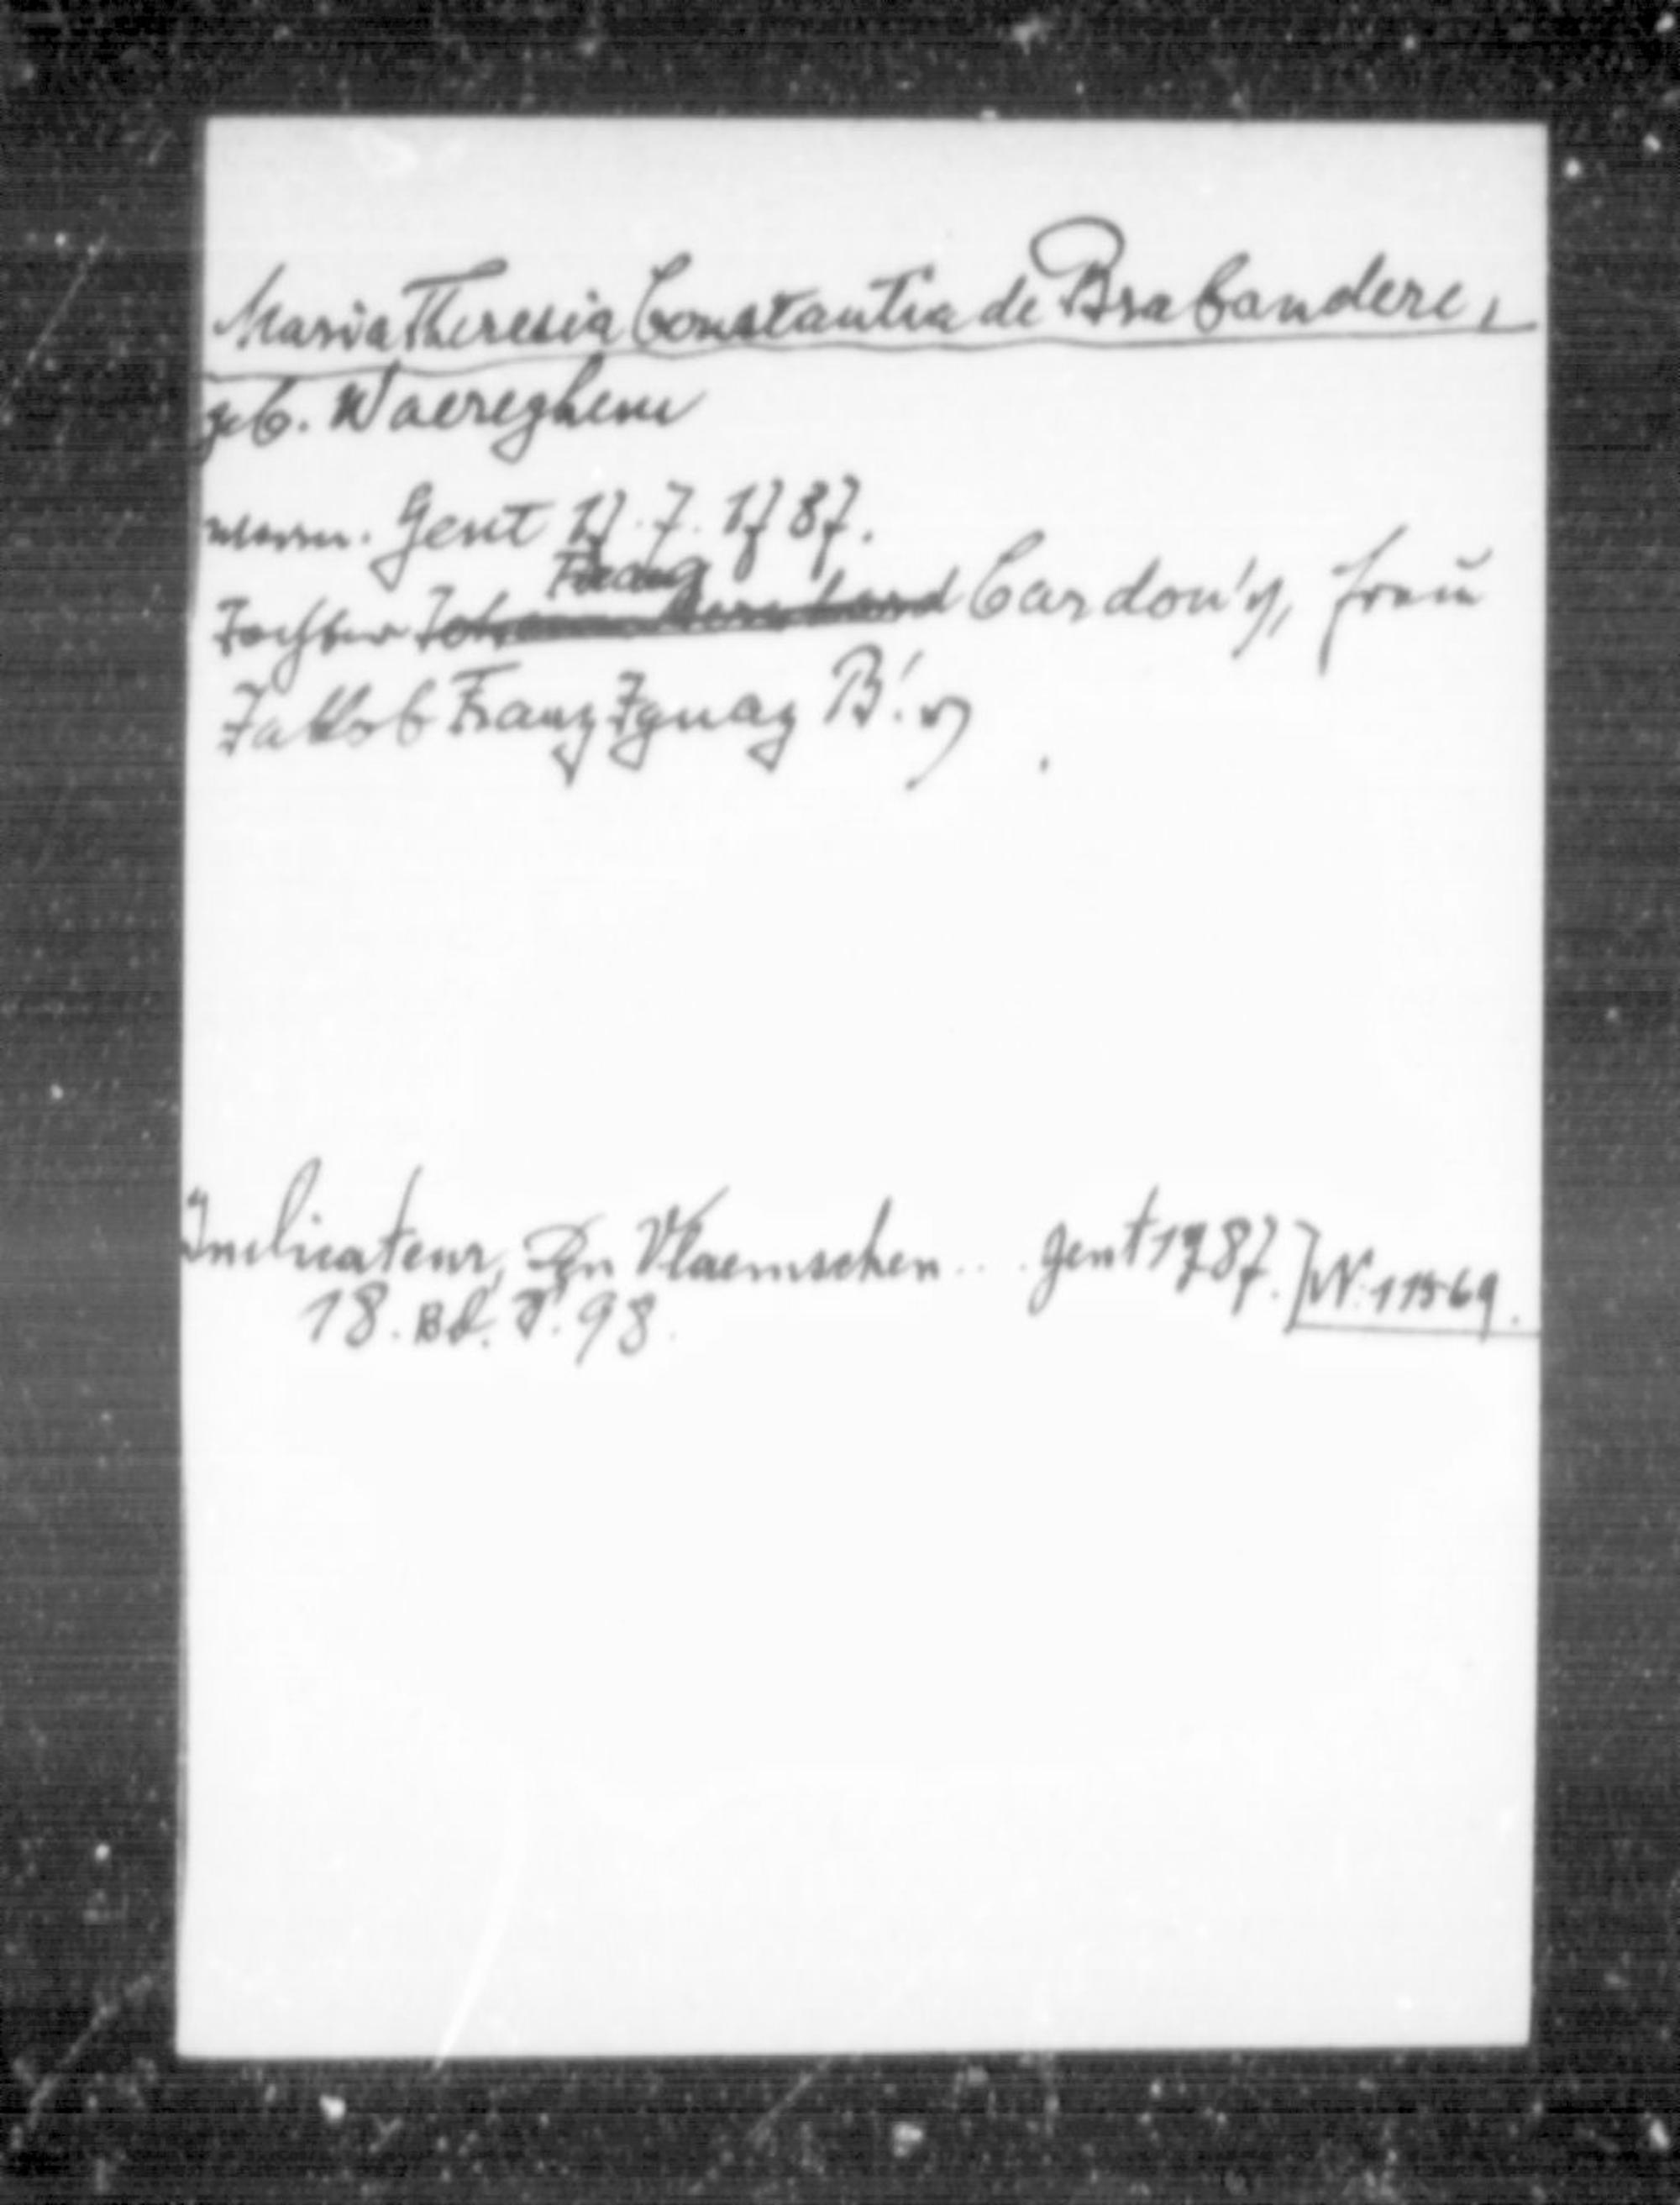 Maria Theresia Constantia de Brabandere,
geb. Waereghem
verm. Gent 17.7.1787.
Franz
Tochter Johann Bernhard Cardon's, Frau
Jakob Franz Ignaz B!s
Indicateur, Den Vlaemschen... Gent 1787.] N. 11569.
18. Bd. S. 98.